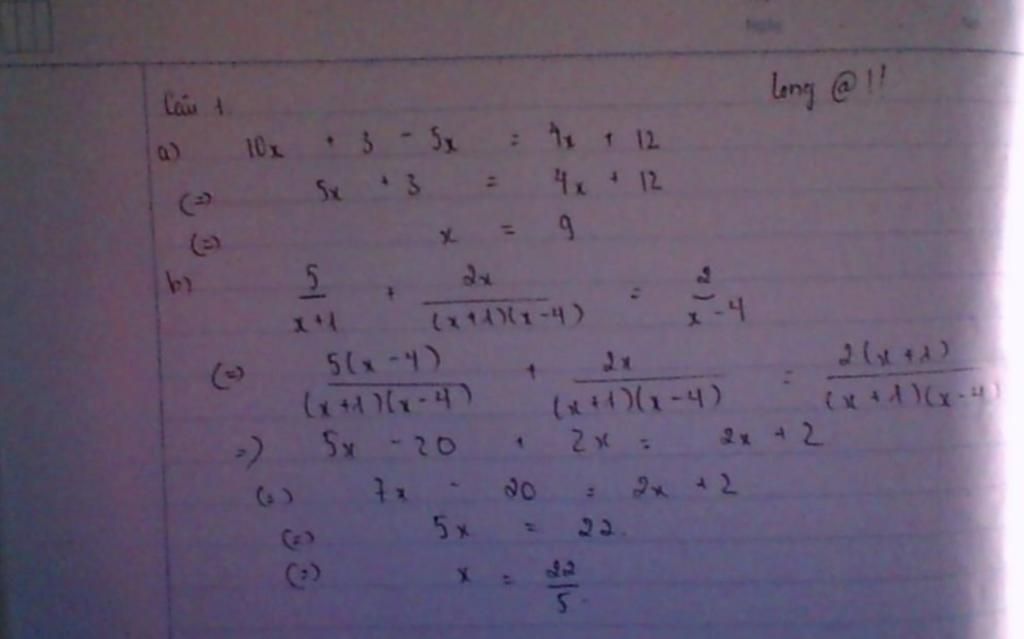 Long @!!
Câu 1.
a) 10x + 3 - 5x = 4x + 12
(=) 5x + 3 = 4x + 12
(=) x = 9
b) 5/(x+1) + 2x/((x+1)(x-4)) = 2/(x-4)
(=) 5(x-4)/((x+1)(x-4)) + 2x/((x+1)(x-4)) = 2(x+1)/((x+1)(x-4))
=) 5x - 20 + 2x = 2x + 2
(=) 7x - 20 = 2x + 2
(=) 5x = 22.
(=) x = 22/5.